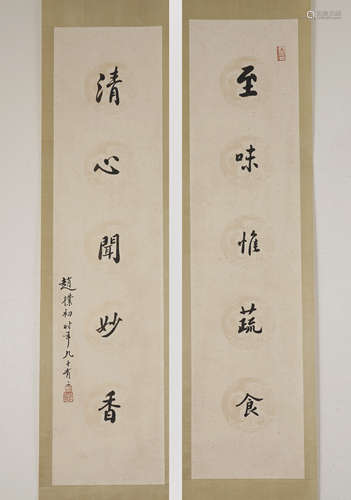 至味惟蔬食
清心聞妙香
趙樸初時年九十有